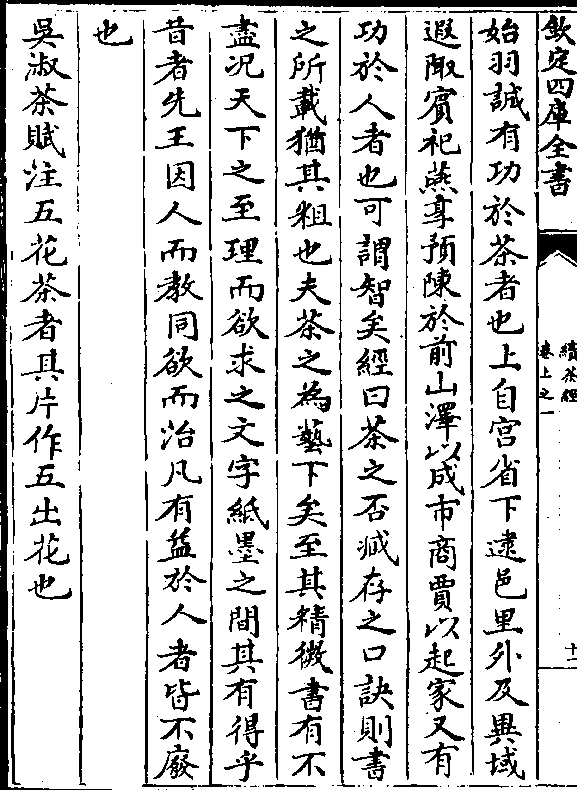 欽定四庫全書
續茶經
卷上之一
十二
始羽誠有功於茶者也上自宮省下逮邑里外及異域
遐陬賓祀燕享預陳於前山澤以成市商賈以起家又有
功於人者也可謂智矣經曰茶之否臧存之口訣則書
之所載猶其粗也夫茶之為藝下矣至其精微書有不
盡況天下之至理而欲求之文字紙墨之間其有得乎
昔者先王因人而教同欲而治凡有益於人者皆不廢
也
吳淑茶賦注五花茶者其片作五出花也